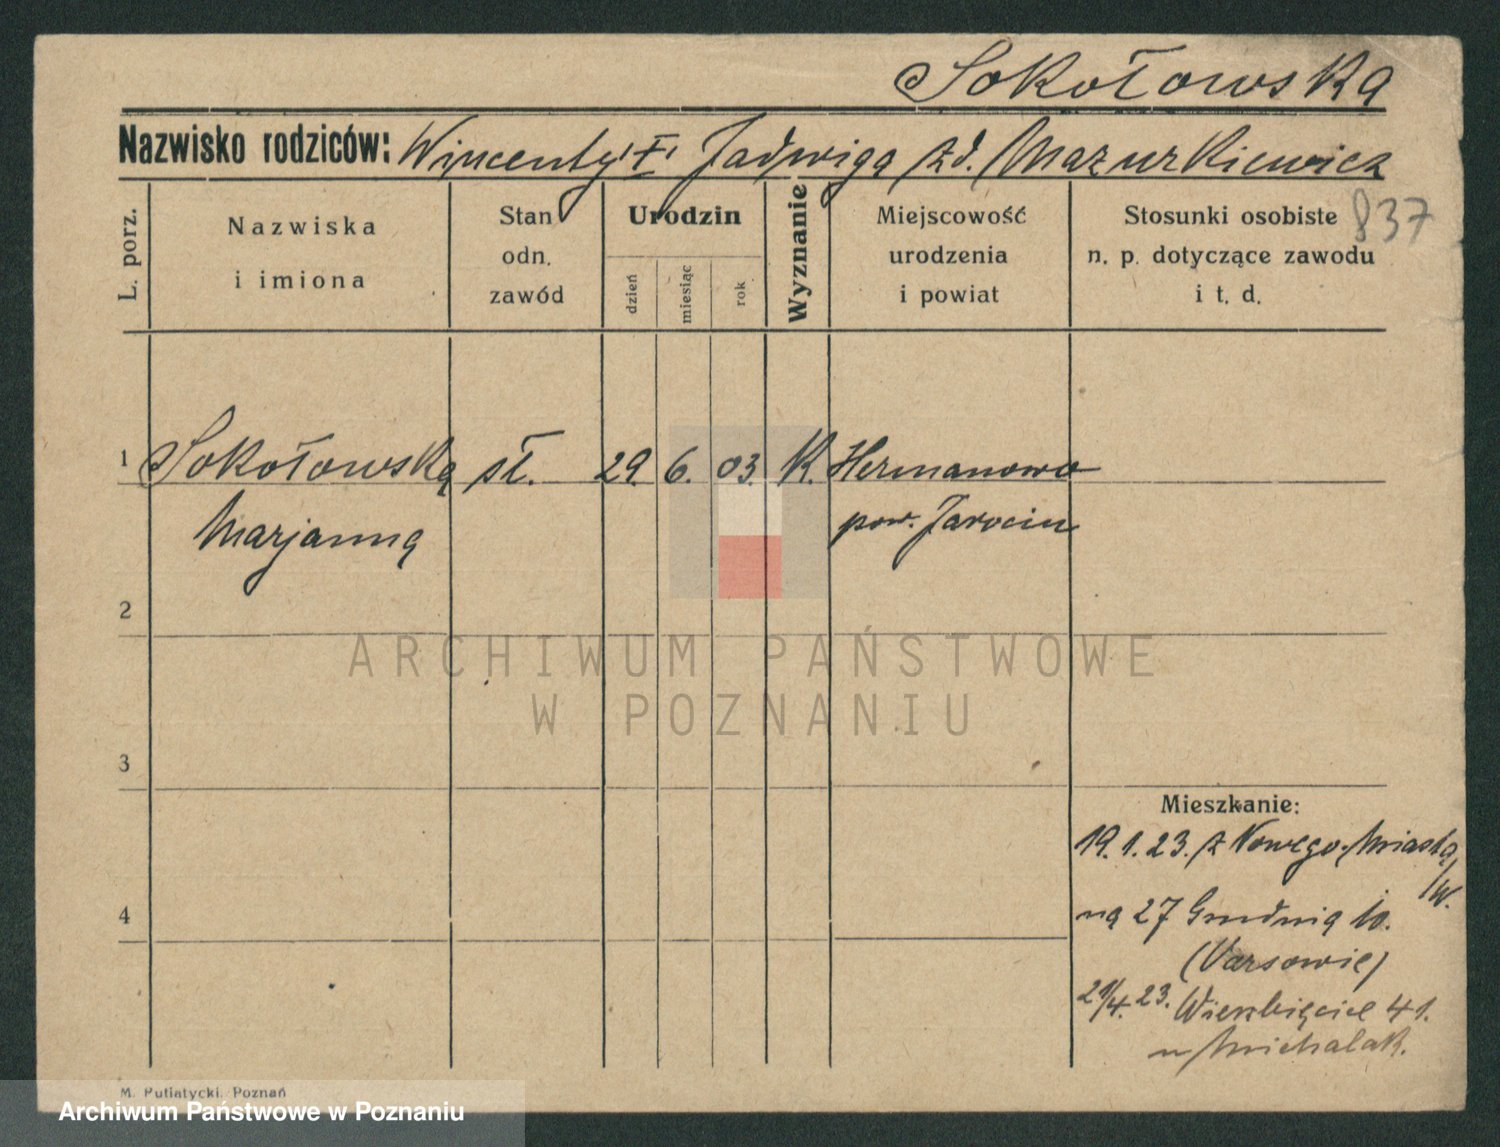 Sokołowska
Nazwisko rodziców: Wincenty i Jadwiga zd. Mazurkiewicz
837
L. porz.
Nazwiska
i imiona
Stan
odn.
zawód
Urodzin
dzień
miesiąc
rok
Wyznanie
Miejscowość
urodzenia
i powiat
Stosunki osobiste
n. p. dotyczące zawodu
i t. d.
1 Sokołowska sł. 29. 6. 03. K. Hermanowo
Marjanna pow. Jarocin
2
ARCHIWUM PAŃSTWOWE
W POZNANIU
3
Mieszkanie:
19.1.23. z Nowego-Miasta
/W.
4
na 27 Grudnia 10.
(Varsovie)
21/4.23. Wierzbięcice 41.
u Michalak.
M. Putiatycki, Poznań
Archiwum Państwowe w Poznaniu